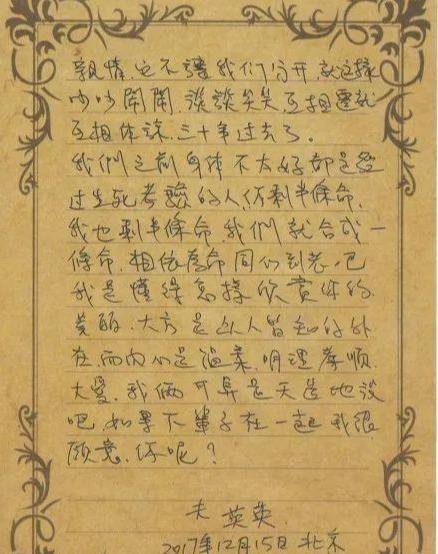 親情.它不讓我们分开.就这樣
吵吵鬧鬧.談談笑笑.互相遷就
互相体諒.三十年过去了.
我們之前身体不太好都是经
过生死考驗的人.你剩半條命.
我也剩半條命.我們就合成一
條命.相依為命同们到老.吧
我是懂得怎樣欣賞你的
美丽.大方是人人皆知的外
在.而内心是温柔.明理孝順
大愛.我俩可算是天造地设
吧.如果下輩子在一起我很
願意.你呢?
夫 英英.
2017年12月15日 北京